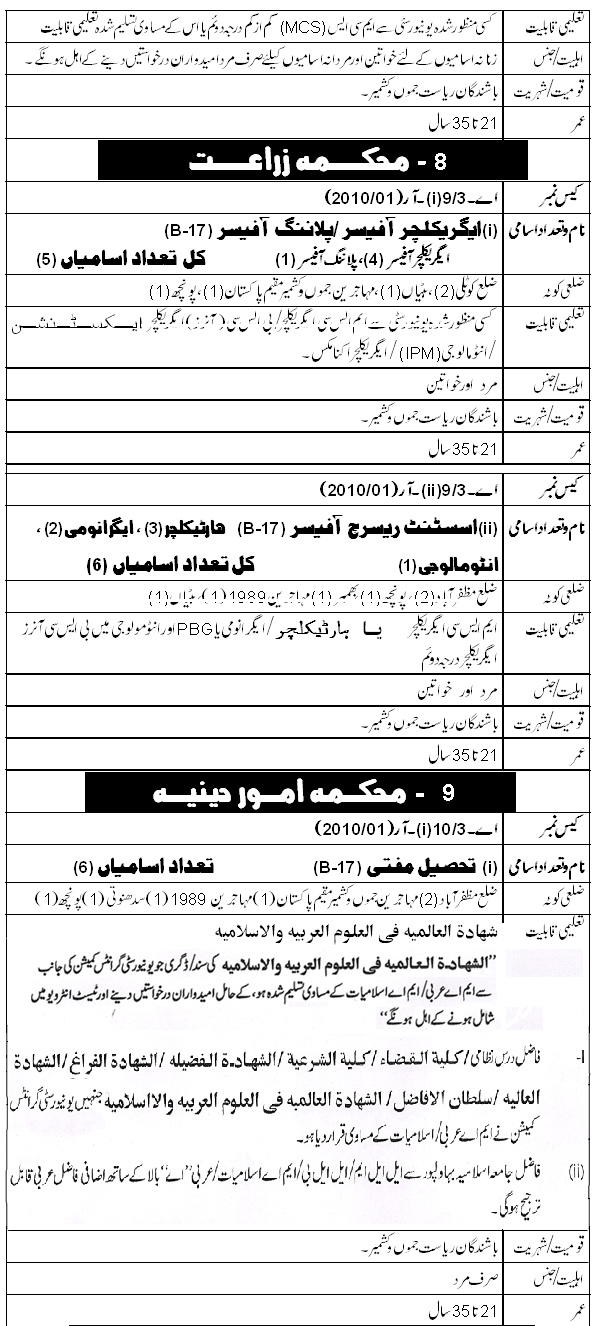 تعلیمی قابلیت کسی منظور شدہ یونیورسٹی سے ایم سی ایس (MCS) کم از کم درجہ دوئم یا اس کے مساوی تسلیم شدہ تعلیمی قابلیت
اہلیت/جنس زنانہ اسامیوں کے لئے خواتین اور مردانہ اسامیوں کیلئے صرف مرد امیدواران درخواستیں دینے کے اہل ہونگے۔
قومیت/شہریت باشندگان ریاست جموں و کشمیر۔
عمر 21 تا 35 سال
8 - محکمہ زراعت
کیس نمبر اے۔9/3(i)۔آر(2010/01)
نام و تعداد اسامی (i) ایگریکلچر آفیسر /پلاننگ آفیسر (B-17)
ایگریکلچر آفیسر (4)، پلاننگ آفیسر (1) کل تعداد اسامیاں (5)
ضلعی کوٹہ ضلع کوٹلی (2)، ہٹیاں (1)، مہاجرین جموں و کشمیر مقیم پاکستان (1)، پونچھ (1)
تعلیمی قابلیت کسی منظور شدہ یونیورسٹی سے ایم ایس سی ایگریکلچر/ بی ایس سی (آنرز) ایگریکلچر ایکسٹنشن
/ انٹومالوجی (IPM) / ایگریکلچر اکنامکس۔
اہلیت/جنس مرد اور خواتین
قومیت/شہریت باشندگان ریاست جموں و کشمیر۔
عمر 21 تا 35 سال
کیس نمبر اے۔9/3(ii)۔آر(2010/01)
نام و تعداد اسامی (ii) اسسٹنٹ ریسرچ آفیسر (B-17) ہارٹیکلچر (3)، ایگرانومی (2)،
انٹومالوجی (1) کل تعداد اسامیاں (6)
ضلعی کوٹہ ضلع مظفر آباد (2)، پونچھ (1) بھمبر (1) مہاجرین 1989 (1) ہٹیاں (1)
تعلیمی قابلیت ایم ایس سی ایگریکلچر یا ہارٹیکلچر / ایگرانومی یا PBG اور انٹومولوجی میں بی ایس سی آنرز
ایگریکلچر درجہ دوئم
اہلیت/جنس مرد اور خواتین
قومیت/شہریت باشندگان ریاست جموں و کشمیر۔
عمر 21 تا 35 سال
9 - محکمہ امور دینیہ
کیس نمبر اے۔10/3(i)۔آر(2010/01)
نام و تعداد اسامی (i) تحصیل مفتی (B-17) تعداد اسامیاں (6)
ضلعی کوٹہ ضلع مظفر آباد (2) مہاجرین جموں و کشمیر مقیم پاکستان (1) مہاجرین 1989 (1) سدھنوتی (1) پونچھ (1)
تعلیمی قابلیت شہادۃ العالمیہ فی العلوم العربیہ والاسلامیہ
”الشہادۃ العالمیہ فی العلوم العربیہ والاسلامیہ کی سند/ڈگری جو یونیورسٹی گرانٹس کمیشن کی جانب
سے ایم اے عربی/ایم اے اسلامیات کے مساوی تسلیم شدہ ہو، کے حامل امیدواران درخواستیں دینے اور ٹیسٹ انٹرویو میں
شامل ہونے کے اہل ہونگے“
۱- فاضل درس نظامی/ کلیۃ القضاء/ کلیۃ الشرعیۃ / الشہادۃ الفضیلہ / الشہادۃ الفراغ/ الشہادۃ
العالیہ / سلطان الافاضل/ الشہادۃ العالمیہ فی العلوم العربیہ والااسلامیہ جنہیں یونیورسٹی گرانٹس
کمیشن نے ایم اے عربی/اسلامیات کے مساوی قرار دیا ہو۔
(ii) فاضل جامعہ اسلامیہ بہاولپور سے ایل ایل ایم/ ایل ایل بی/ ایم اے اسلامیات/عربی ”اے“ بالا کے ساتھ اضافی فاضل عربی قابل
ترجیح ہوگی۔
قومیت/شہریت باشندگان ریاست جموں و کشمیر۔
اہلیت/جنس صرف مرد
عمر 21 تا 35 سال